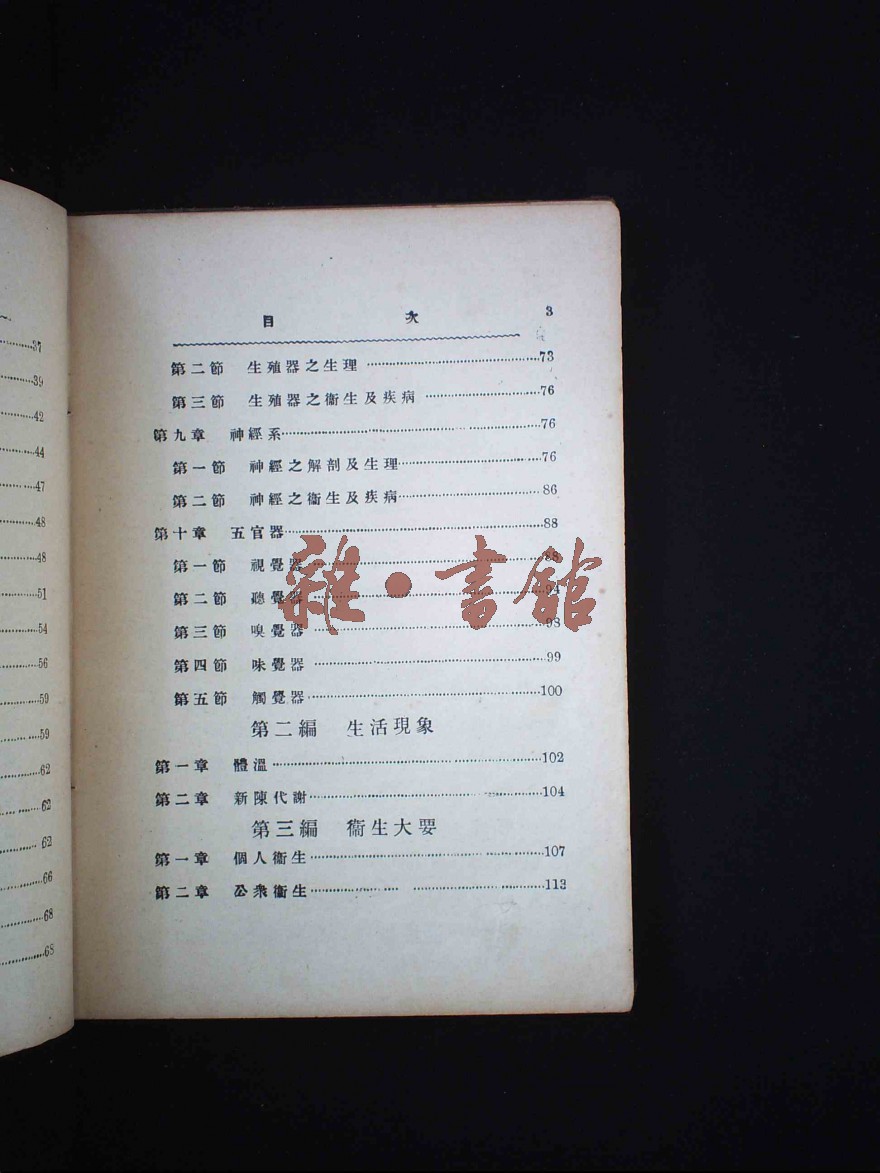 37
39
42
44
47
48
48
51
54
56
59
59
62
62
62
66
68
68
目 次 3
第二節 生殖器之生理 73
第三節 生殖器之衞生及疾病 76
第九章 神經系 76
第一節 神經之解剖及生理 76
第二節 神經之衞生及疾病 86
第十章 五官器 88
第一節 視覺器 88
第二節 聽覺器 94
雜·書館
第三節 嗅覺器 98
第四節 味覺器 99
第五節 觸覺器 100
第二編 生活現象
第一章 體溫 102
第二章 新陳代謝 104
第三編 衞生大要
第一章 個人衞生 107
第二章 公衆衞生 113